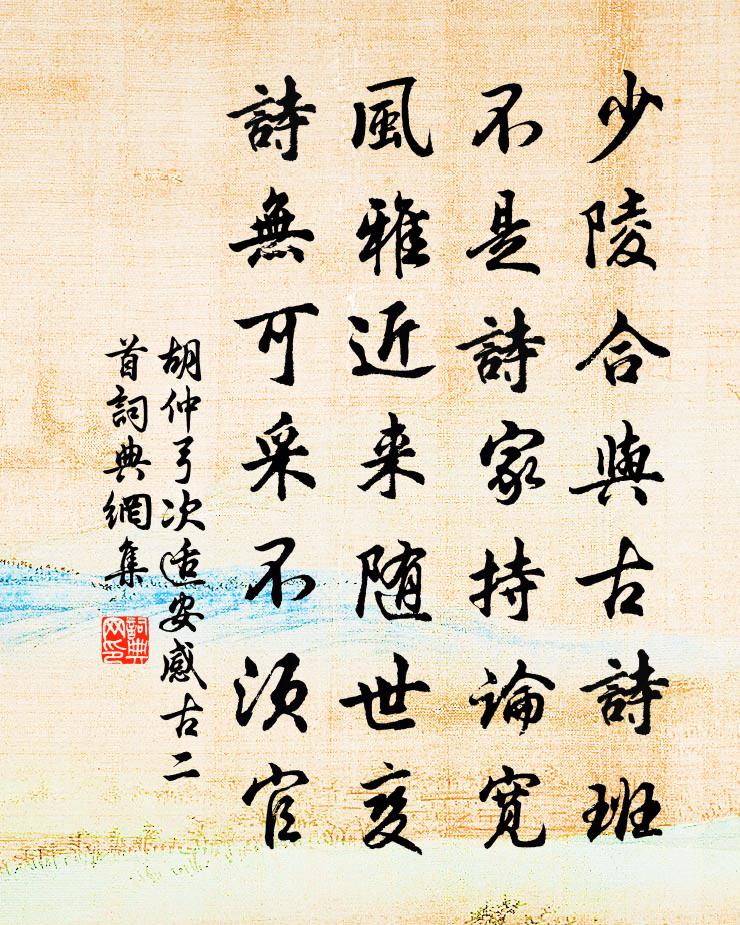 少陵合與古詩班
不是詩家持論寬
風雅近来随世變
詩無可采不須官
胡仲弓次适安感古二
首詞典網集
詞典网印